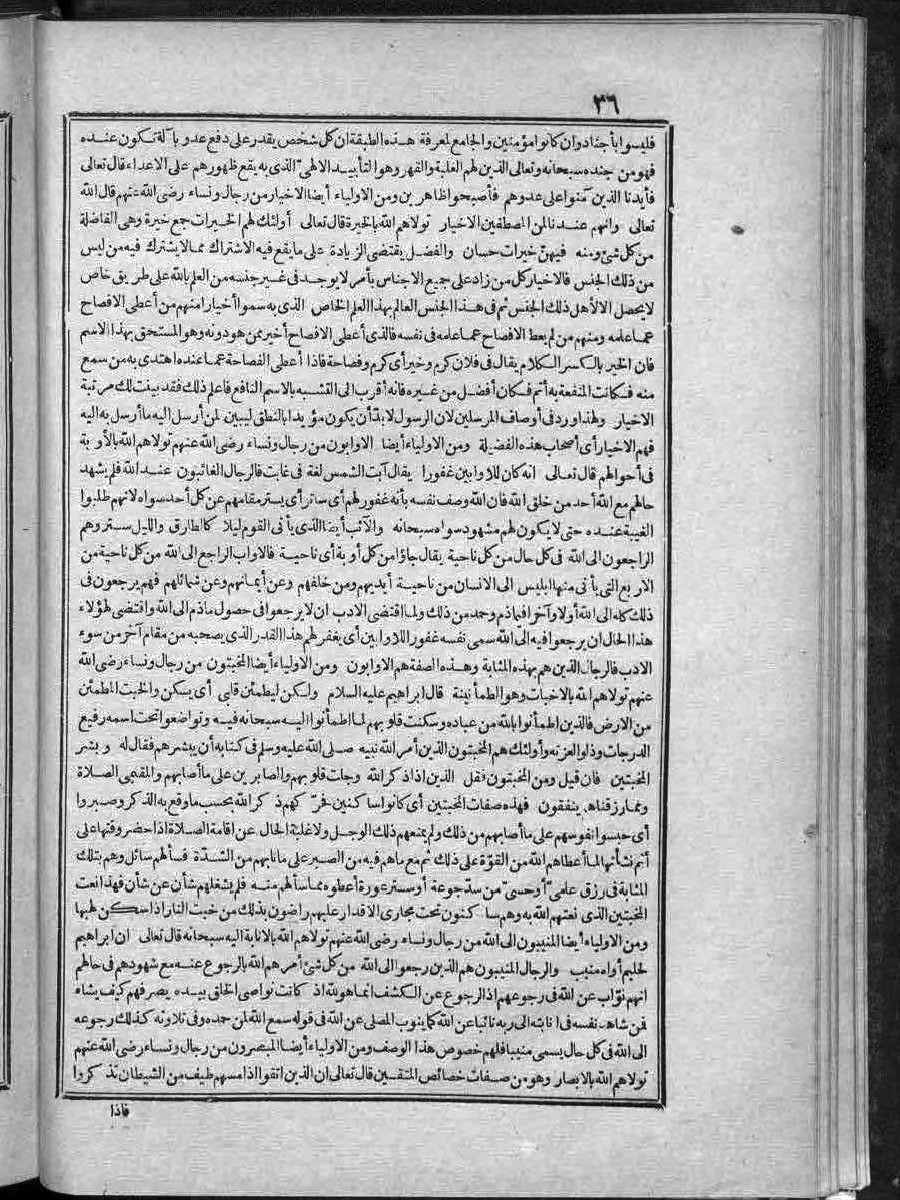 ٣٦
فليسوا بأجناد وان كانوا مؤمنين والجامع لمعرفة هذه الطبقة ان كل شخص يقدر على دفع عدو بآلة تكون عنده
فهو من جنده سبحانه وتعالى الذين لهم الغلبة والقهر وهو التأييد الالهىّ الذى به يقع ظهورهم على الاعداء قال تعالى
فأيدنا الذين آمنوا على عدوهم فأصبحوا ظاهرين ومن الاولياء أيضا الاخيار من رجال ونساء رضى الله عنهم قال الله
تعالى وانهم عندنا لمن المصطفين الاخيار تولاهم الله بالخيرة قال تعالى أولئك لهم الخيرات جمع خيرة وهى الفاضلة
من كل شئ ومنه فيهنّ خيرات حسان والفضل يقتضى الزيادة على ما يقع فيه الاشتراك مما لا يشترك فيه من ليس
من ذلك الجنس فالاخيار كل من زاد على جميع الاجناس بأمر لا يوجد فى غير جنسه من العلم بالله على طريق خاص
لا يحصل الا لأهل ذلك الجنس ثم فى هذا الجنس العالم بهذا العلم الخاص الذى به سموا أخيارا منهم من أعطى الافصاح
عما علمه ومنهم من لم يعط الافصاح عما علمه فى نفسه فالذى أعطى الافصاح أخير ممن هو دونه وهو المستحق بهذا الاسم
فان الخير بالكسر الكلام يقال فى فلان كرم وخير أى كرم وفصاحة فاذا أعطى الفصاحة عما عنده اهتدى به من سمع
منه فكانت المنفعة به أتم فكان أفضل من غيره فانه أقرب الى التشبه بالاسم النافع فاعلم ذلك فقد بينت لك مرتبة
الاخيار ولهذا ورد فى أوصاف المرسلين لان الرسول لا بد أن يكون مؤيدا بالنطق ليبين لمن أرسل اليه ما أرسل به اليه
فهم الاخيار أى أصحاب هذه الفضيلة ومن الاولياء أيضا الاوابون من رجال ونساء رضى الله عنهم تولاهم الله بالأوبة
فى أحوالهم قال تعالى انه كان للاوابين غفورا يقال آبت الشمس لغة فى غابت فالرجال الغائبون عند الله فلم يشهد
حالهم مع الله أحد من خلق الله فان الله وصف نفسه بأنه غفور لهم أى ساتر أى يستر مقامهم عن كل أحد سواه لانهم طلبوا
الغيبة عنده حتى لا يكون لهم مشهود سواه سبحانه والآئب أيضا الذى يأتى القوم ليلا كالطارق والليل ستر وهم
الراجعون الى الله فى كل حال من كل ناحية يقال جاؤا من كل أوبة أى ناحية فالاواب الراجع الى الله من كل ناحية من
الاربع التى يأتى منها ابليس الى الانسان من ناحية أيديهم ومن خلفهم وعن أيمانهم وعن شمائلهم فهم يرجعون فى
ذلك كله الى الله أولا وآخرا فيما ذم وحمد من ذلك ولما اقتضى الادب ان لا يرجعوا فى حصول ما ذم الى الله واقتضى لهؤلاء
هذا الحال ان يرجعوا فيه الى الله سمى نفسه غفور للاوابين أى يغفر لهم هذا القدر الذى يصحبه من مقام آخر من سوء
الادب فالرجال الذين هم بهذه المثابة وهذه الصفة هم الاوابون ومن الاولياء أيضا المخبتون من رجال ونساء رضى الله
عنهم تولاهم الله بالاخبات وهو الطمأنينة قال ابراهيم عليه السلام ولكن ليطمئن قلبى أى يسكن والخبت المطمئن
من الارض فالذين اطمأنوا بالله من عباده وسكنت قلوبهم لما اطمأنوا اليه سبحانه فيه وتواضعوا تحت اسمه رفيع
الدرجات وذلوا لعزته وأولئك هم المخبتون الذين أمر الله نبيه صلى الله عليه وسلم فى كتابه أن يبشرهم فقال له وبشر
المخبتين فان قيل ومن المخبتون فقل الذين اذا ذكر الله وجلت قلوبهم والصابرين على ما أصابهم والمقيمى الصلاة
ومما رزقناهم ينفقون فهذه صفات المخبتين أى كانوا ساكنين فحرّكهم ذكر الله بحسب ما وقع به الذكر وصبروا
أى حبسوا نفوسهم على ما أصابهم من ذلك ولم يمنعهم ذلك الوجل ولا غلبة الحال عن اقامة الصلاة اذا حضر وقتها على
أتم نشأتها لما أعطاهم الله من القوّة على ذلك ثم مع ما هم فيه من الصبر على ما نابهم من الشدّة فسألهم سائل وهم بتلك
المثابة فى رزق علمىّ أو حسىّ من سدّ جوعة أو ستر عورة أعطوه مما سألهم منه فلم يشغلهم شأن عن شأن فهذا نعت
المخبتين الذى نعتهم الله به وهم ساكنون تحت مجارى الاقدار عليهم راضون بذلك من خبت النار اذا سكن لهبها
ومن الاولياء أيضا المنيبون الى الله من رجال ونساء رضى الله عنهم تولاهم الله بالانابة اليه سبحانه قال تعالى ان ابراهيم
لحليم أوّاه منيب والرجال المنيبون هم الذين رجعوا الى الله من كل شئ أمرهم الله بالرجوع عنه مع شهودهم فى حالهم
انهم نوّاب عن الله فى رجوعهم اذ الرجوع عن الكشف انما هو لله اذ كانت نواصى الخلق بيده يصرفهم كيف يشاء
فمن شاهد نفسه فى انابته الى ربه نائبا عن الله كما ينوب المصلى عن الله فى قوله سمع الله لمن حمده وفى تلاوته كذلك رجوعه
الى الله فى كل حال يسمى منيبا فلهم خصوص هذا الوصف ومن الاولياء أيضا المبصرون من رجال ونساء رضى الله عنهم
تولاهم الله بالابصار وهو من صفات خصائص المتقين قال تعالى ان الذين اتقوا اذا مسهم طيف من الشيطان تذكروا
فاذا